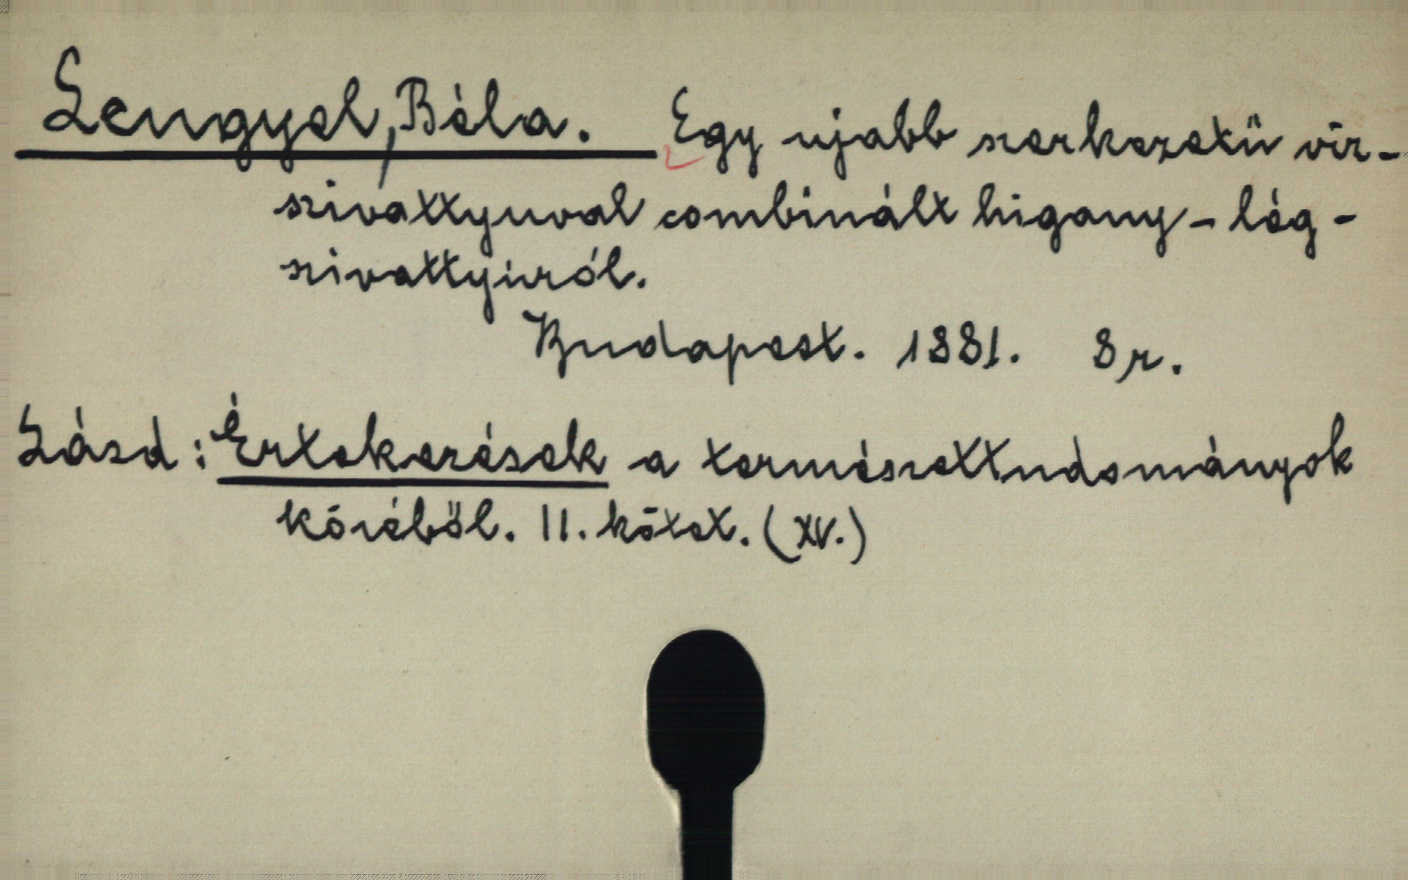 Lengyel, Béla. Egy ujabb szerkezetü víz-
szivattyuval combinált higany-lég-
szivattyúról.
Budapest. 1881. 8r.
Lásd: Értekezések a természettudományok
köréből. 11. kötet. (XV.)